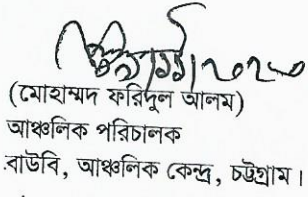 (মোহাম্মদ ফরিদুল আলম)
আঞ্চলিক পরিচালক
বাউবি, আঞ্চলিক কেন্দ্র, চট্টগ্রাম।